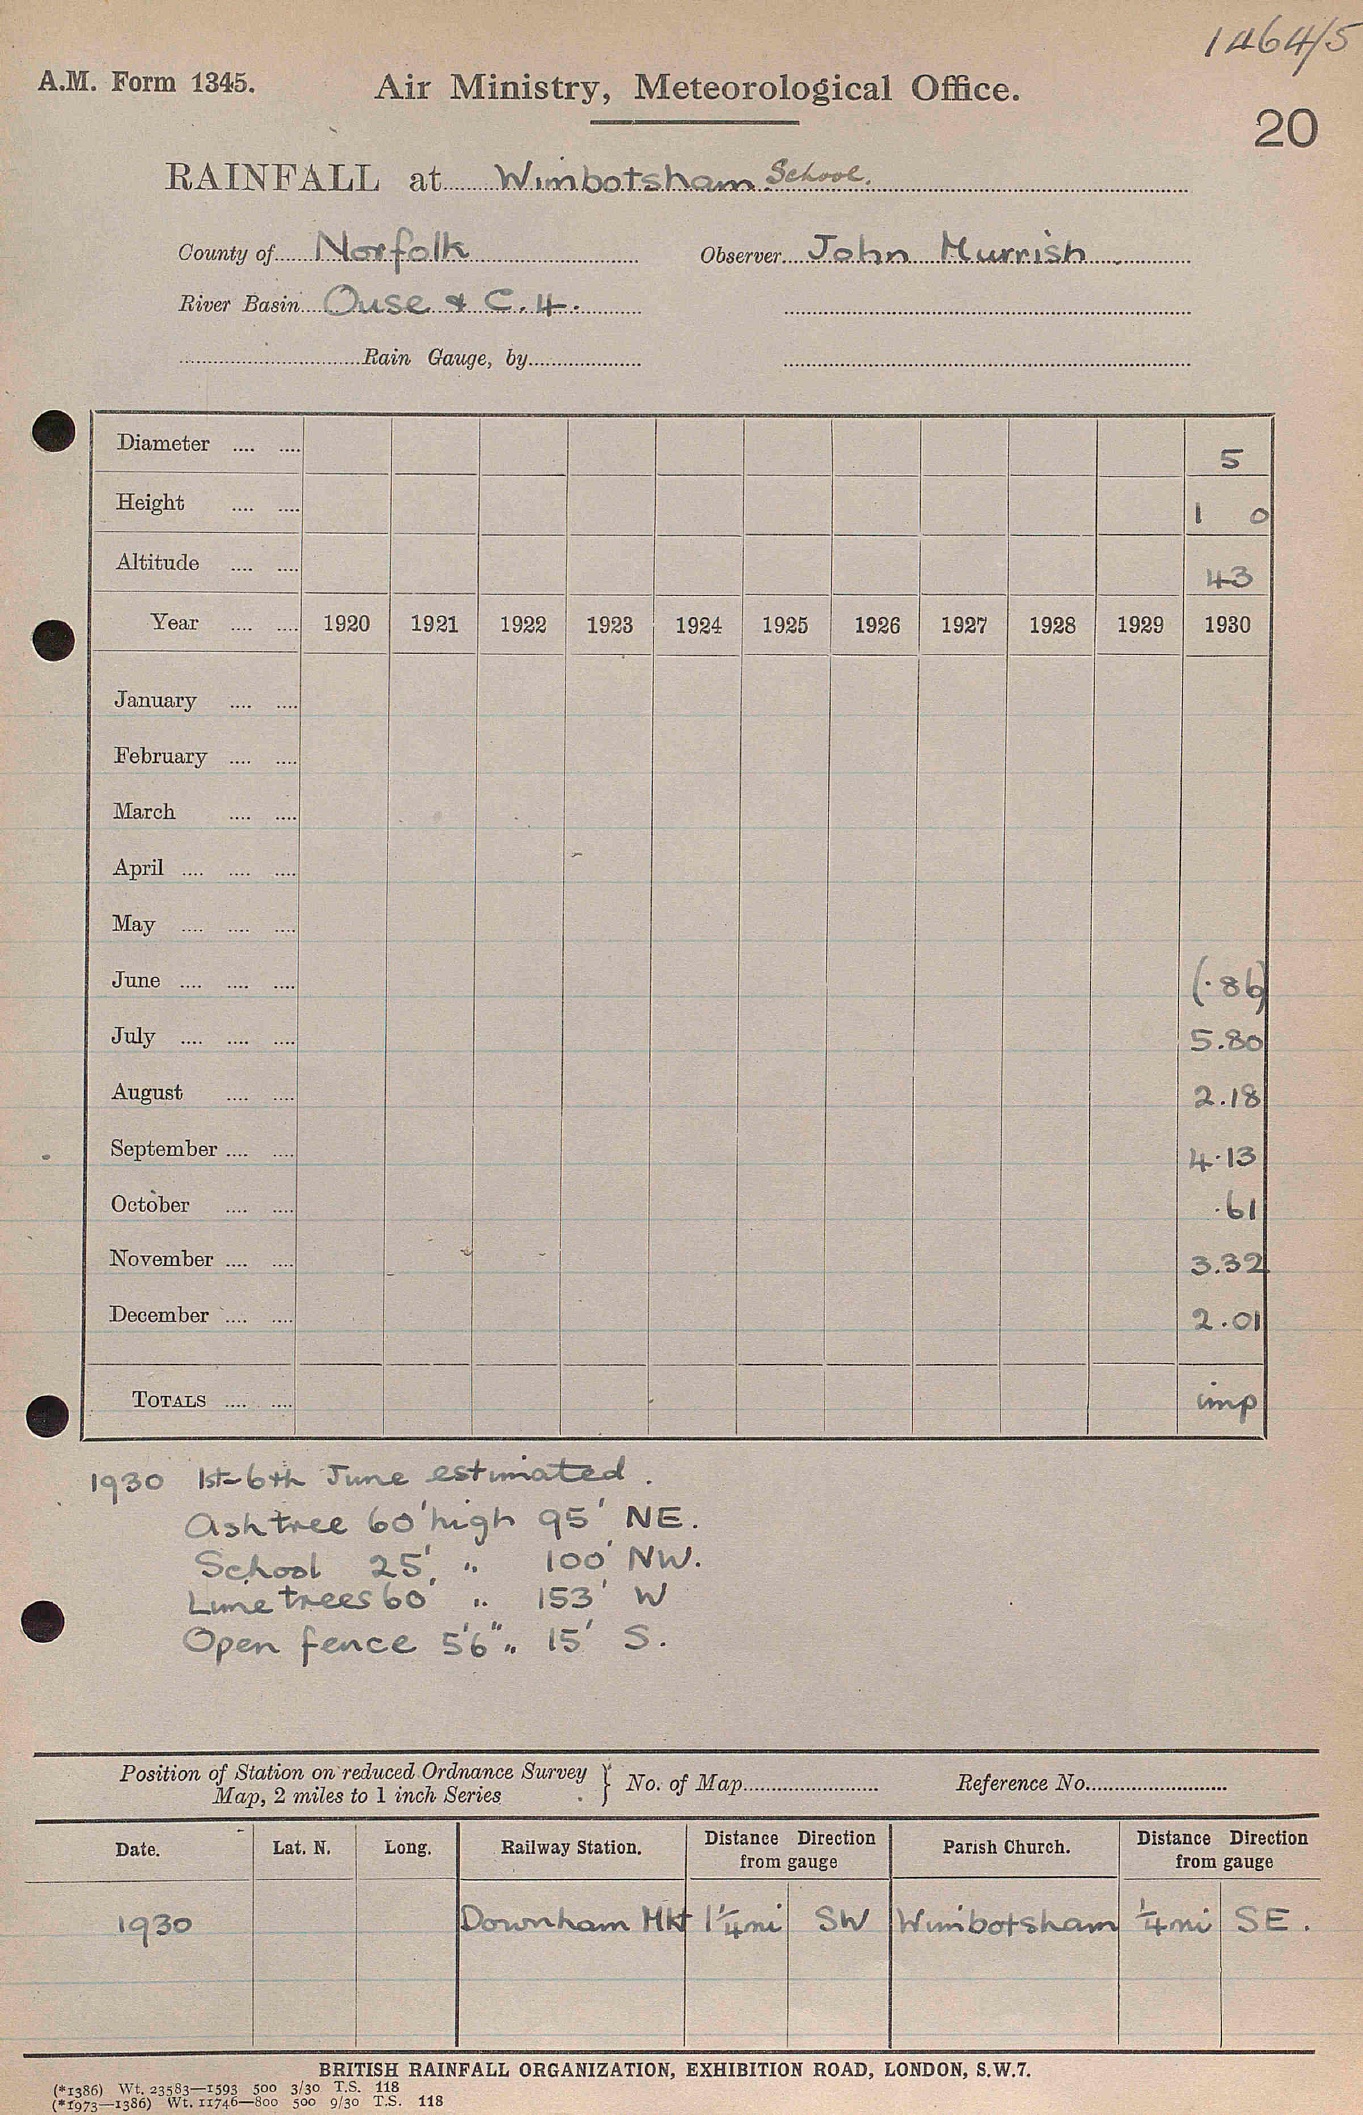 1464/5
A.M. Form 1345. Air Ministry, Meteorological Office.
20
RAINFALL at Wimbotsham School.
County of Norfolk Observer John Murrish
River Basin Ouse & C.4.
Rain Gauge, by
Diameter .... .... 5
Height .... .... 1 0
Altitude .... .... 43
Year .... .... 1920 1921 1922 1923 1924 1925 1926 1927 1928 1929 1930
January .... ....
February .... ....
March .... ....
April .... .... ....
May .... .... ....
June .... .... .... (.86)
July .... .... .... 5.80
August .... .... 2.18
September .... .... 4.13
October .... .... .61
November .... .... 3.32
December .... .... 2.01
TOTALS .... .... imp
1930 1st-6th June estimated.
Ash tree 60' high 95' NE.
School 25' " 100' NW.
Lime trees 60' " 153' W
Open fence 5'6" " 15' S.
Position of Station on reduced Ordnance Survey
Map, 2 miles to 1 inch Series } No. of Map Reference No.
Date. Lat. N. Long. Railway Station. Distance Direction from gauge Parish Church. Distance Direction from gauge
1930 Downham Mkt 1¼mi SW Wimbotsham ¼mi SE.
BRITISH RAINFALL ORGANIZATION, EXHIBITION ROAD, LONDON, S.W.7.
(*1386) Wt. 23583—1593 500 3/30 T.S. 118
(*1973—1386) Wt. 11746—800 500 9/30 T.S. 118